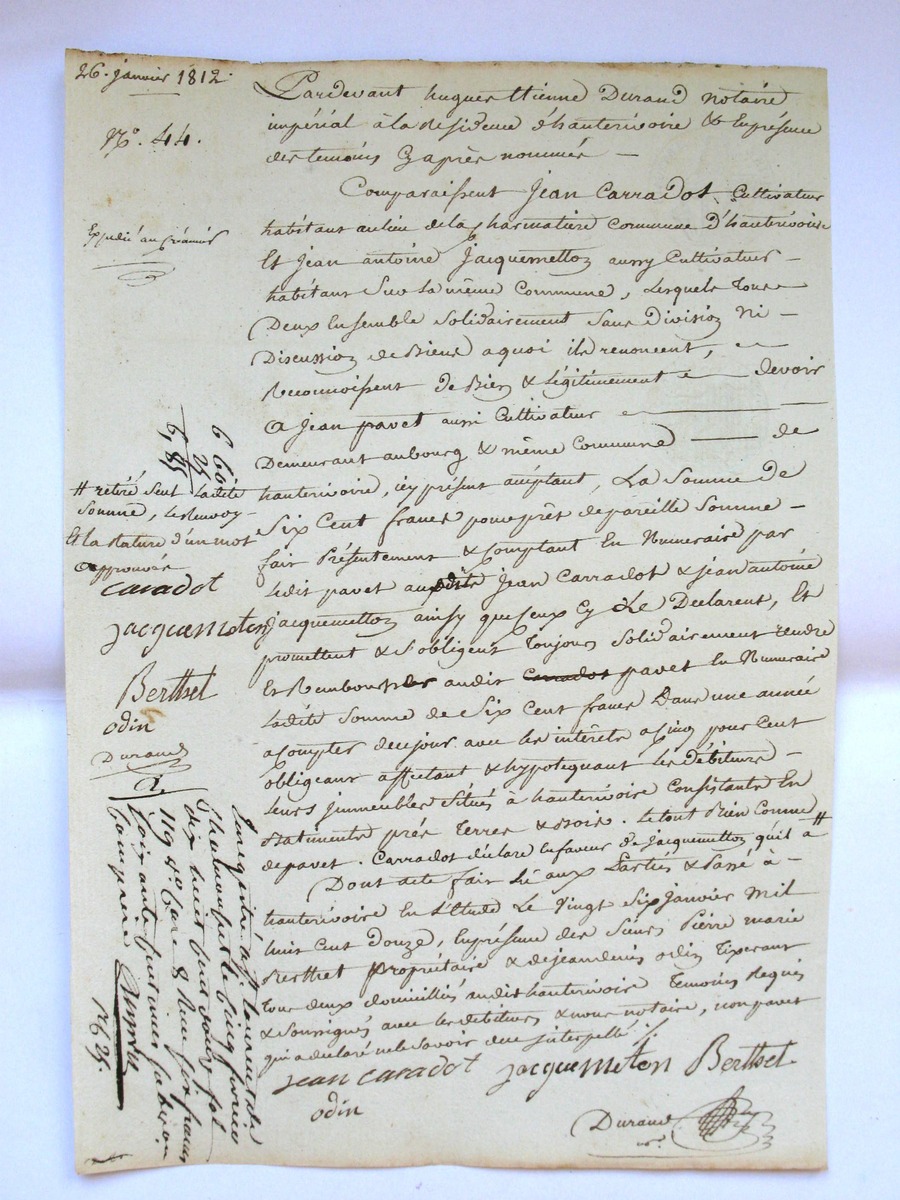 26. janvier 1812.
N.º 44.
Expédié au créancier
Pardevant hugues Etienne Durand notaire
impérial à la Residence d'hauterivoire & En présence
des temoins Cy après nommés —
Comparaissent Jean Carradot Cultivateur
habitant au lieu de la Charmatière commune d'hauterivoire
Et Jean antoine Jacquemetton aussy Cultivateur —
habitant Sur la même Commune, Lesquels Tous
Deux Ensemble Solidairement Sans Division Ni —
Discussion de Biens a quoi ils renoncent, —
Reconnoissent de Bien & légitimement — devoir
a Jean pavet aussi Cultivateur —
Demeurant au bourg & même Commune — de
hauterivoire, icy présent acceptant, La Somme de
Six Cent francs pour prêt de pareille Somme —
fait Présentement & Comptant En Numeraire par
ledit pavet auxdits Jean Carradot & jean antoine
jacquemetton ainsy que Ceux Cy Le Declarent, Et
promettent & S'obligent Toujours Solidairement rendre
Et Rembourser audit Carradot pavet En Numeraire
Ladite Somme de Six Cent francs Dans une année
a Compter de ce jour avec les interêts a Cinq pour Cent
obligeant affectant & hypotequant les débiteurs —
leurs jmmeubles Situés à hauterivoire Consistants En
Batiments prés Terres & Bois. Le tout Bien Connu
de pavet. Carradot déclare En faveur de jacquemetton qu'il a #
Dont acte fait Lû aux Parties & Passé à —
hauterivoire En L'Etude Le Vingt Six Janvier Mil
huit Cent Douze, En présence des Sieurs Pierre marie
Berthet Propriétaire & de jean denis odin Tixerant
Tous deux domiciliés audit hauterivoire Temoins Requis
& Soussignés avec les débiteurs & nous notaire, non pavet
qui a déclaré ne le Savoir de ce interpellé ./.
jean caradot
jacquemeton
Berthet
odin
Durand
6 60
25
6, 85
# retiré Seul Ladite
Somme, Le Renvoy —
Et la Rature d'un mot
approuvés
caradot
jacquemeton
Berthet
odin
Durand
Enregistré à St Laurent de
Chamousset le Cinq février
dix huit cent douze fol
119 Vº Case 8 Reçu six francs
soixante
compris